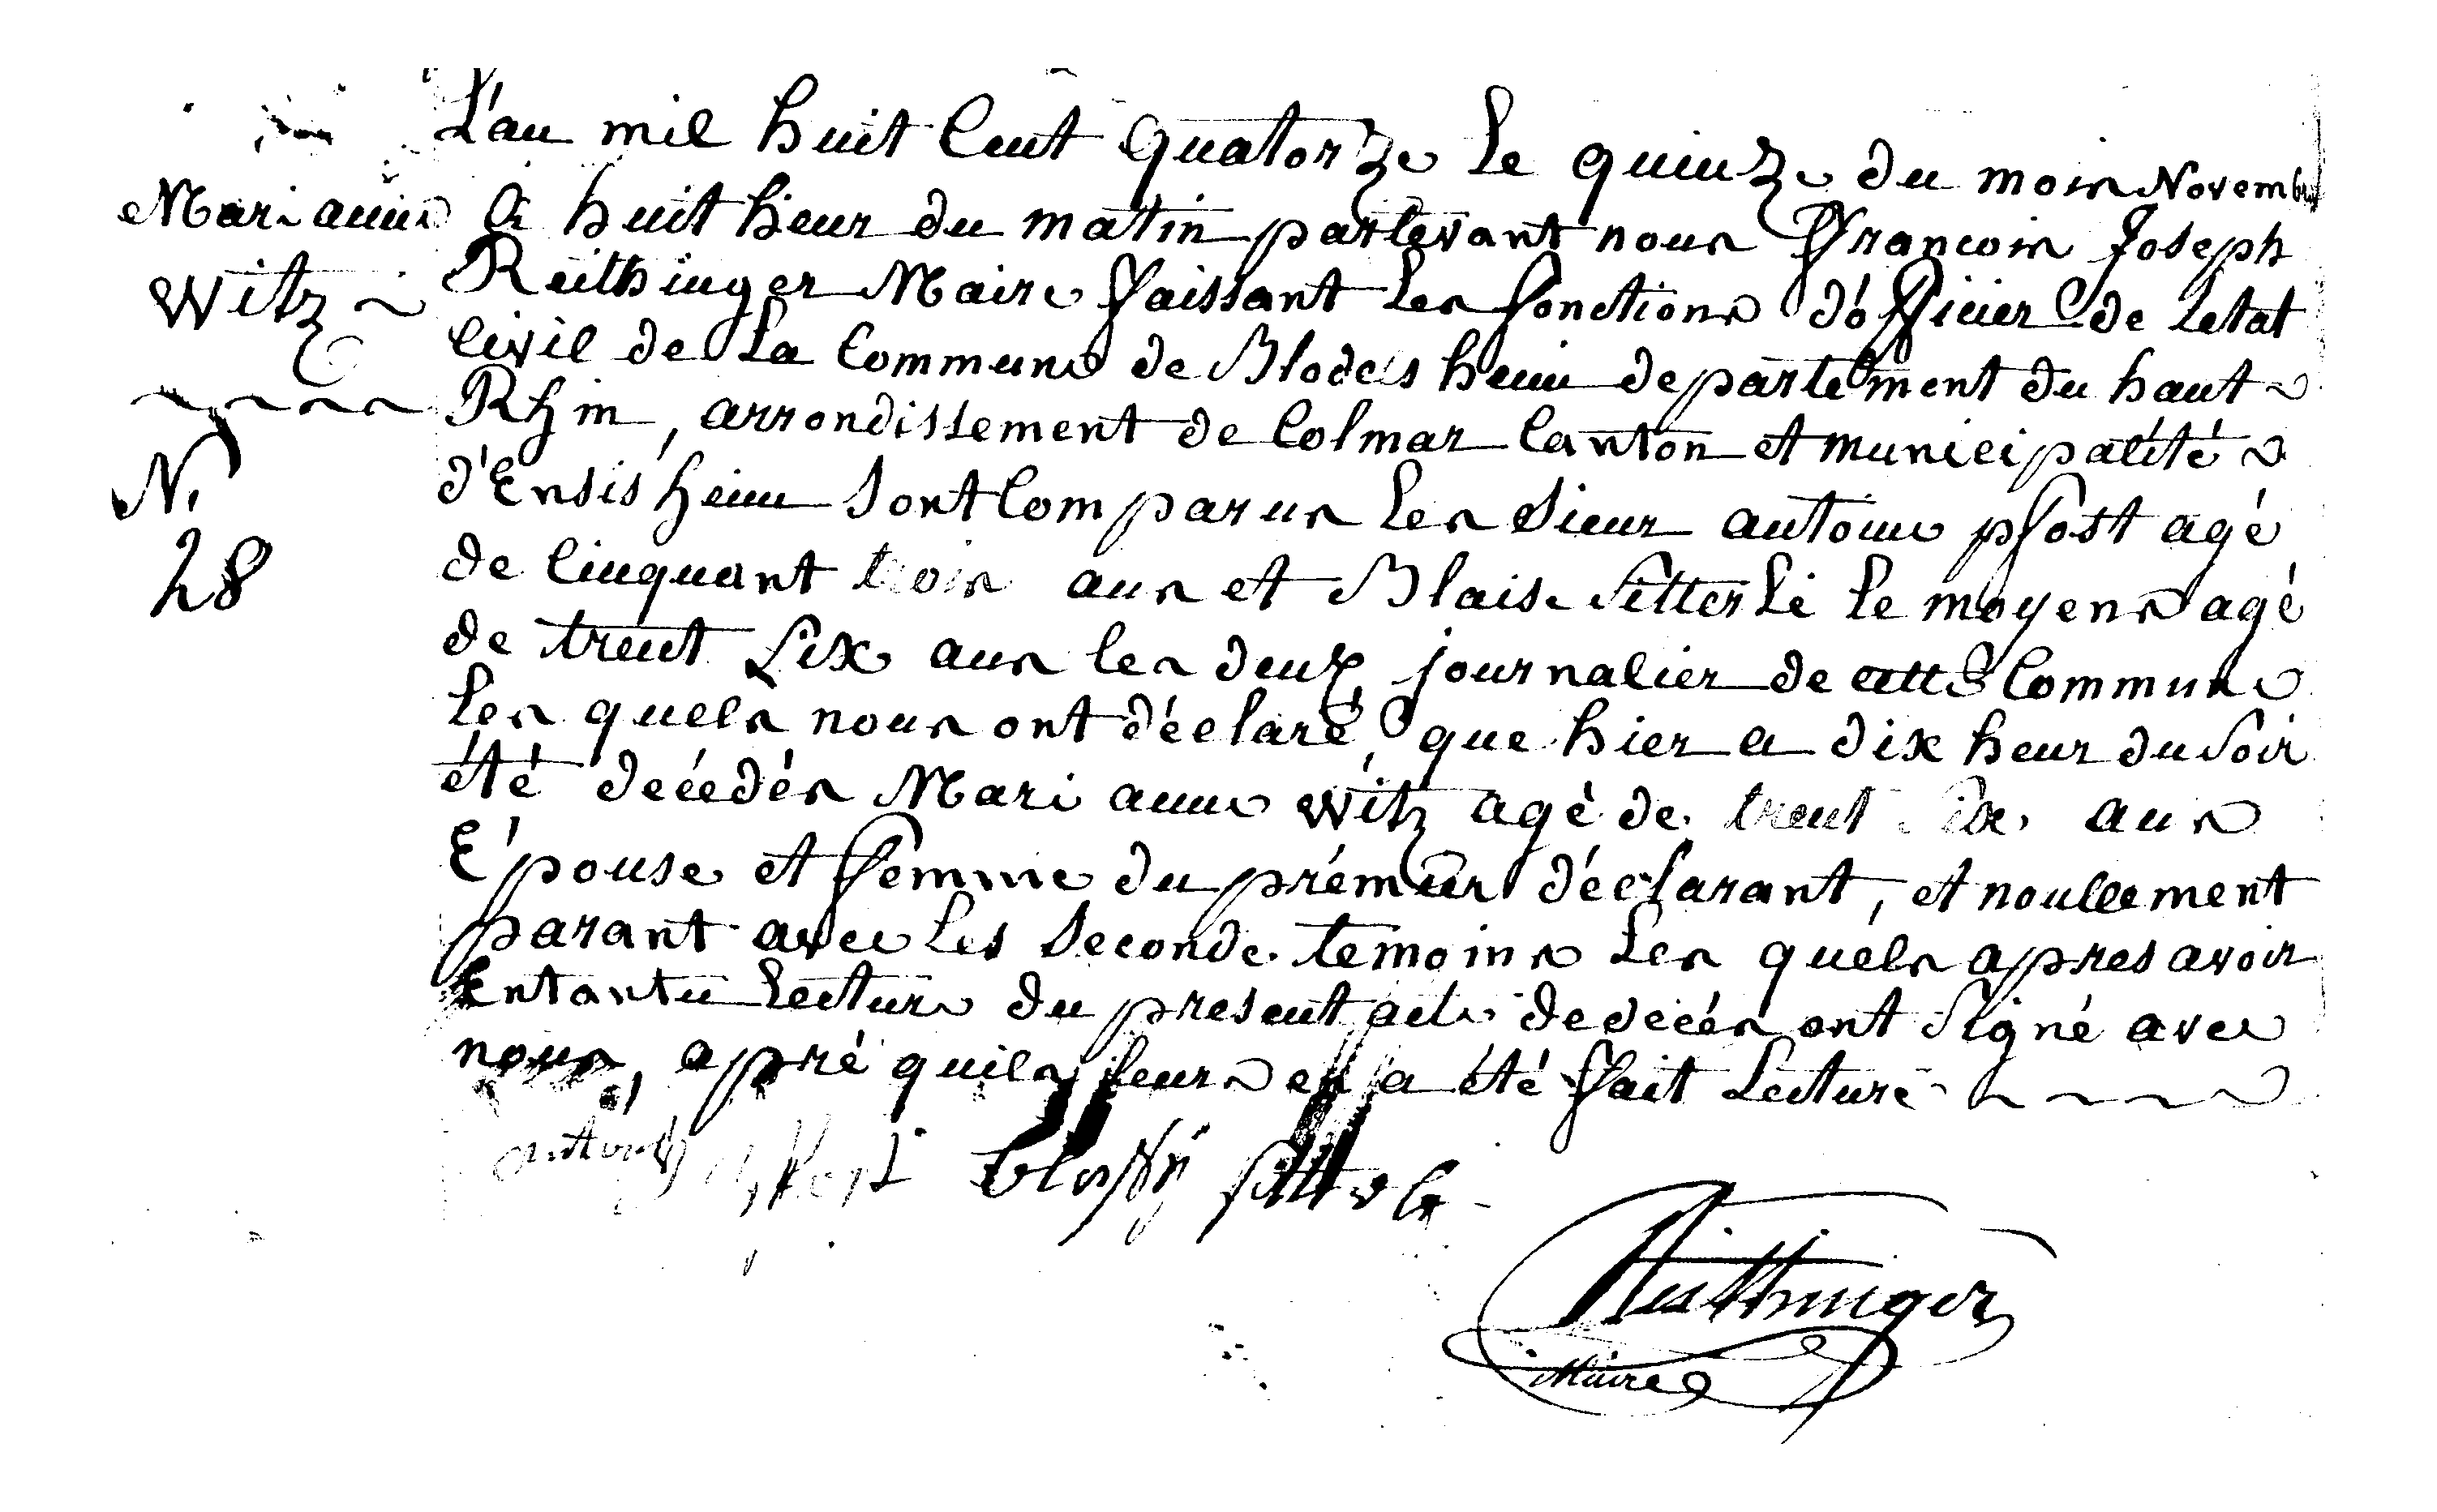 L'an mil huit Cent quatorze le quinze du mois Novembre
Mari anne
Witz
N.
28
à huit heur du matin parlevant nous Francois Joseph
Reithinger Maire faissant les fonctions d'officier de letat
Civil de la Commune de Blodelsheim departement du haut
Rhin, arrondissement de Colmar Canton et municipalité
d'Ensisheim sont Comparus les sieur antoine pfost agé
de Cinquant trois ans et Blaise Sitterlé le moyens agé
de trent six ans les deux journalier de cette Commune
les quels nous ont déclaré, que hier a dix heur du soir
été décedés Mari anne Witz agé de trent six ans
Epouse et femme du prémier déclarant, et noullement
parant avec les seconde temoins les quels apres avoir
Entantu lecture du present acte de decés ont signé avec
nous, apré quils leurs en a été fait lecture
Reithinger
Maire